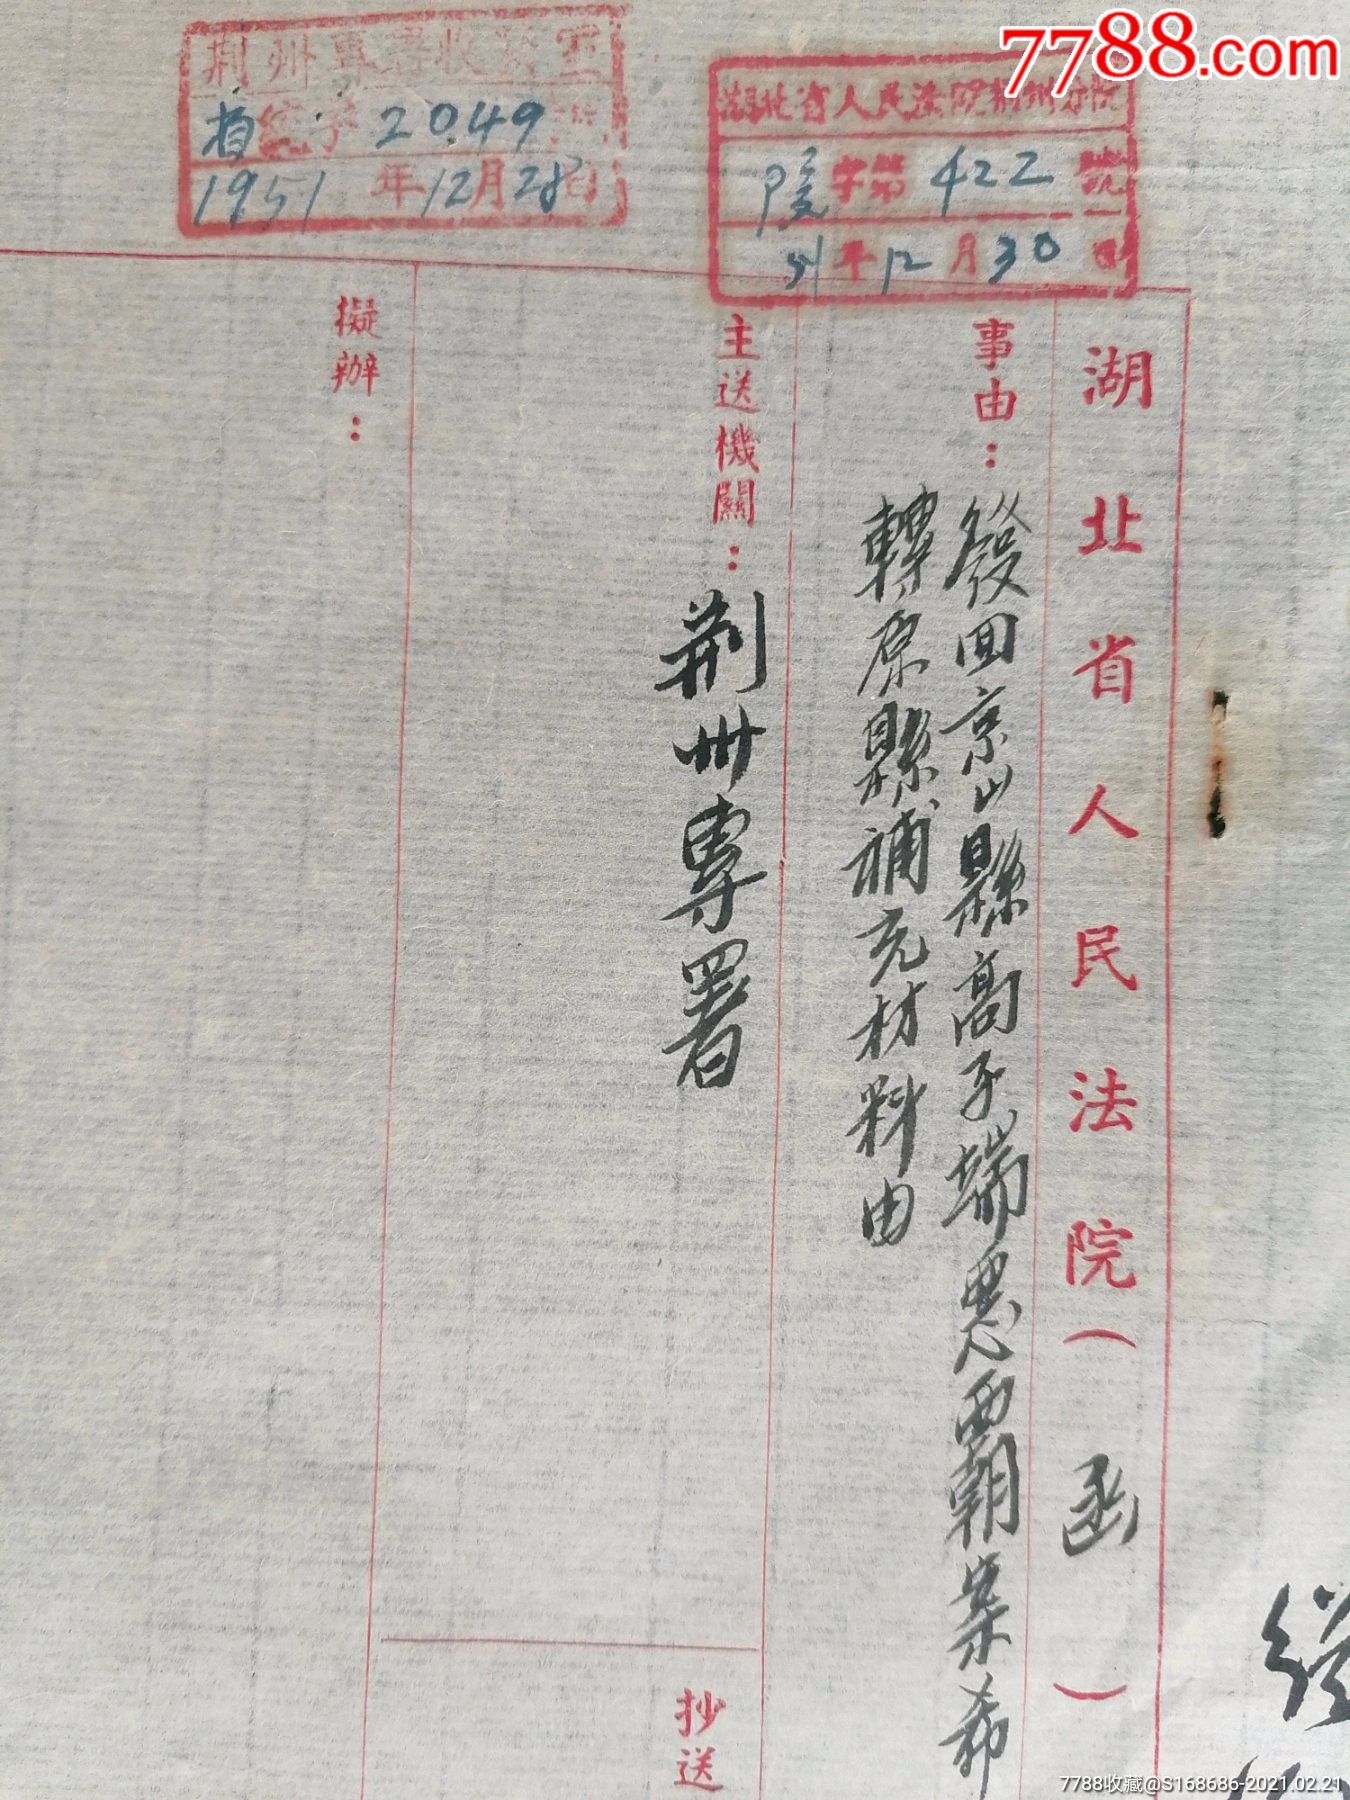 7788.com
荆州專署收發室
省統字 2049 號
1951年12月28日
湖北省人民法院荆州分院
陵字第422號
51年12月30日
湖北省人民法院(函)
事由:發回京山縣高子端惡霸案希
轉原縣補充材料由
主送機關:荆州專署
抄送
擬辦:
7788收藏@S168686-2021.02.21